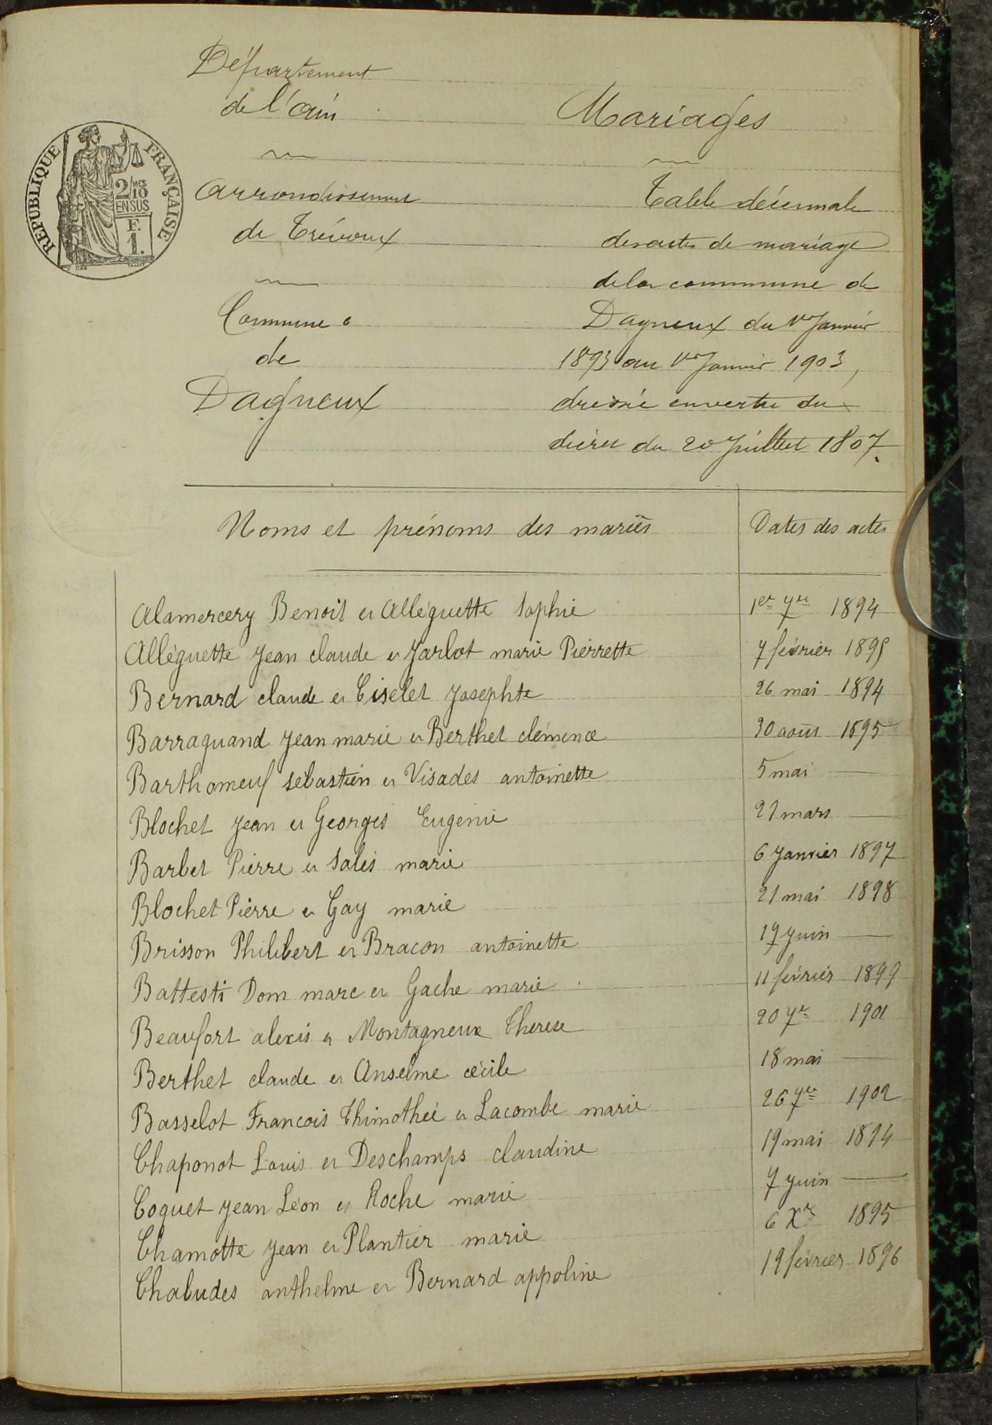 Département
de l'Ain
Mariages
RÉPUBLIQUE FRANÇAISE
2/10 MES
EN SUS
F.
1.
Arrondissement
de Trévoux
Table décennale
des actes de mariage
de la commune de
Commune
de
Dagneux
Dagneux du 1er Janvier
1893 au 1er Janvier 1903,
dressée en vertu du
décret du 20 Juillet 1807.
Noms et prénoms des mariés Dates des actes
Alamercery Benoit et Alleguette Sophie 1er 7bre 1894
Alleguette Jean claude et Jarbot marie Pierrette 7 février 1895
Bernard claude et Ciselet Josephte 26 mai 1894
Barraquand Jean marie et Berthet clémence 30 août 1895
Barthomeuf sebastien et Visades antoinette 5 mai —
Blochet Jean et Georges Eugenie 27 mars —
Barbet Pierre et Salès marie 6 Janvier 1897
Blochet Pierre et Gay marie 21 mai 1898
Brisson Philibert et Bracon antoinette 17 juin —
Battesti Dom marc et Gache marie 11 février 1899
Beaufort alexis et Montagneux Therese 20 7bre 1901
Berthet claude et Anselme cécile 18 mai —
Basselot Francois Thimothée et Lacombe marie 26 7bre 1902
Chaponot Louis et Deschamps claudine 19 mai 1894
Coquet Jean Léon et Roche marie 7 juin —
Chamotte Jean et Plantier marie 6 Xbre 1895
Chabudes anthelme et Bernard appoline 19 février 1896